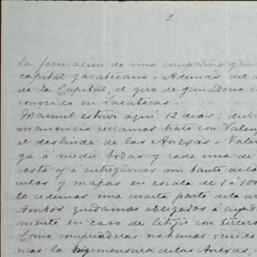 2
la formacion de una compañia
capital zacatecano. Ademas del
de la Capital, el giro de ganaderia
conocido en Zacatecas.
Manuel estuvo aqui 12 dias;
cerramos trato con
el deslinde de las Anexas.
ga á medir todas y cada una de
costo y á entregarnos un tanto de los
y mapas en escala de 1 á
le cedemos una cuarta parte del
Ambos quedamos obligados á
mente en caso de litijio con terceros
Como comprenderá no hemos
mas la mensura de las Anexas,